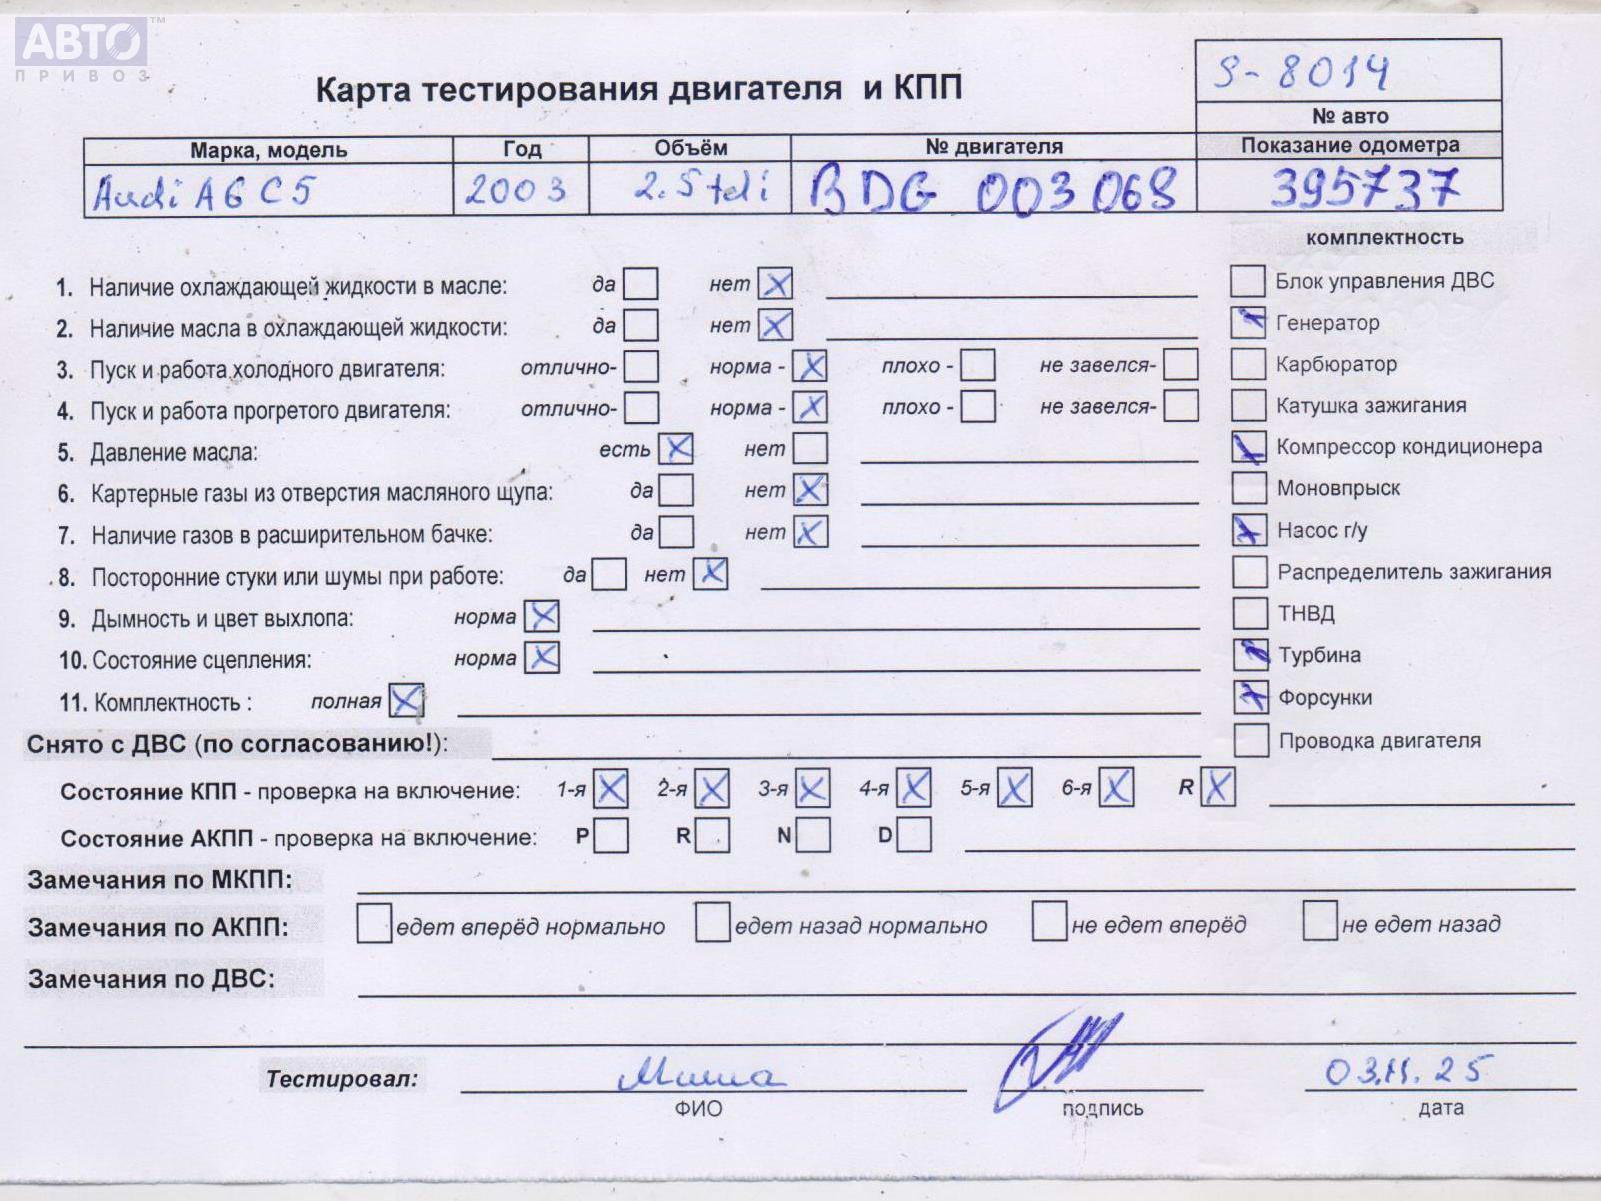 АВТО™
ПРИВОЗ
Карта тестирования двигателя и КПП
S-8014
№ авто
Марка, модель Год Объём № двигателя Показание одометра
Audi A6 C5 2003 2.5 tdi BDG 003068 395737
комплектность
1. Наличие охлаждающей жидкости в масле: да нет X
Блок управления ДВС
2. Наличие масла в охлаждающей жидкости: да нет X
Генератор
3. Пуск и работа холодного двигателя: отлично- норма - X плохо - не завелся-
Карбюратор
4. Пуск и работа прогретого двигателя: отлично- норма - X плохо - не завелся-
Катушка зажигания
5. Давление масла: есть X нет
Компрессор кондиционера
6. Картерные газы из отверстия масляного щупа: да нет X
Моновпрыск
7. Наличие газов в расширительном бачке: да нет X
Насос г/у
8. Посторонние стуки или шумы при работе: да нет X
Распределитель зажигания
9. Дымность и цвет выхлопа: норма X
ТНВД
10. Состояние сцепления: норма X
Турбина
11. Комплектность : полная X
Форсунки
Снято с ДВС (по согласованию!):
Проводка двигателя
Состояние КПП - проверка на включение: 1-я X 2-я X 3-я X 4-я X 5-я X 6-я X R X
Состояние АКПП - проверка на включение: P R N D
Замечания по МКПП:
Замечания по АКПП: едет вперёд нормально едет назад нормально не едет вперёд не едет назад
Замечания по ДВС:
Тестировал: Миша 03.11.25
ФИО подпись дата